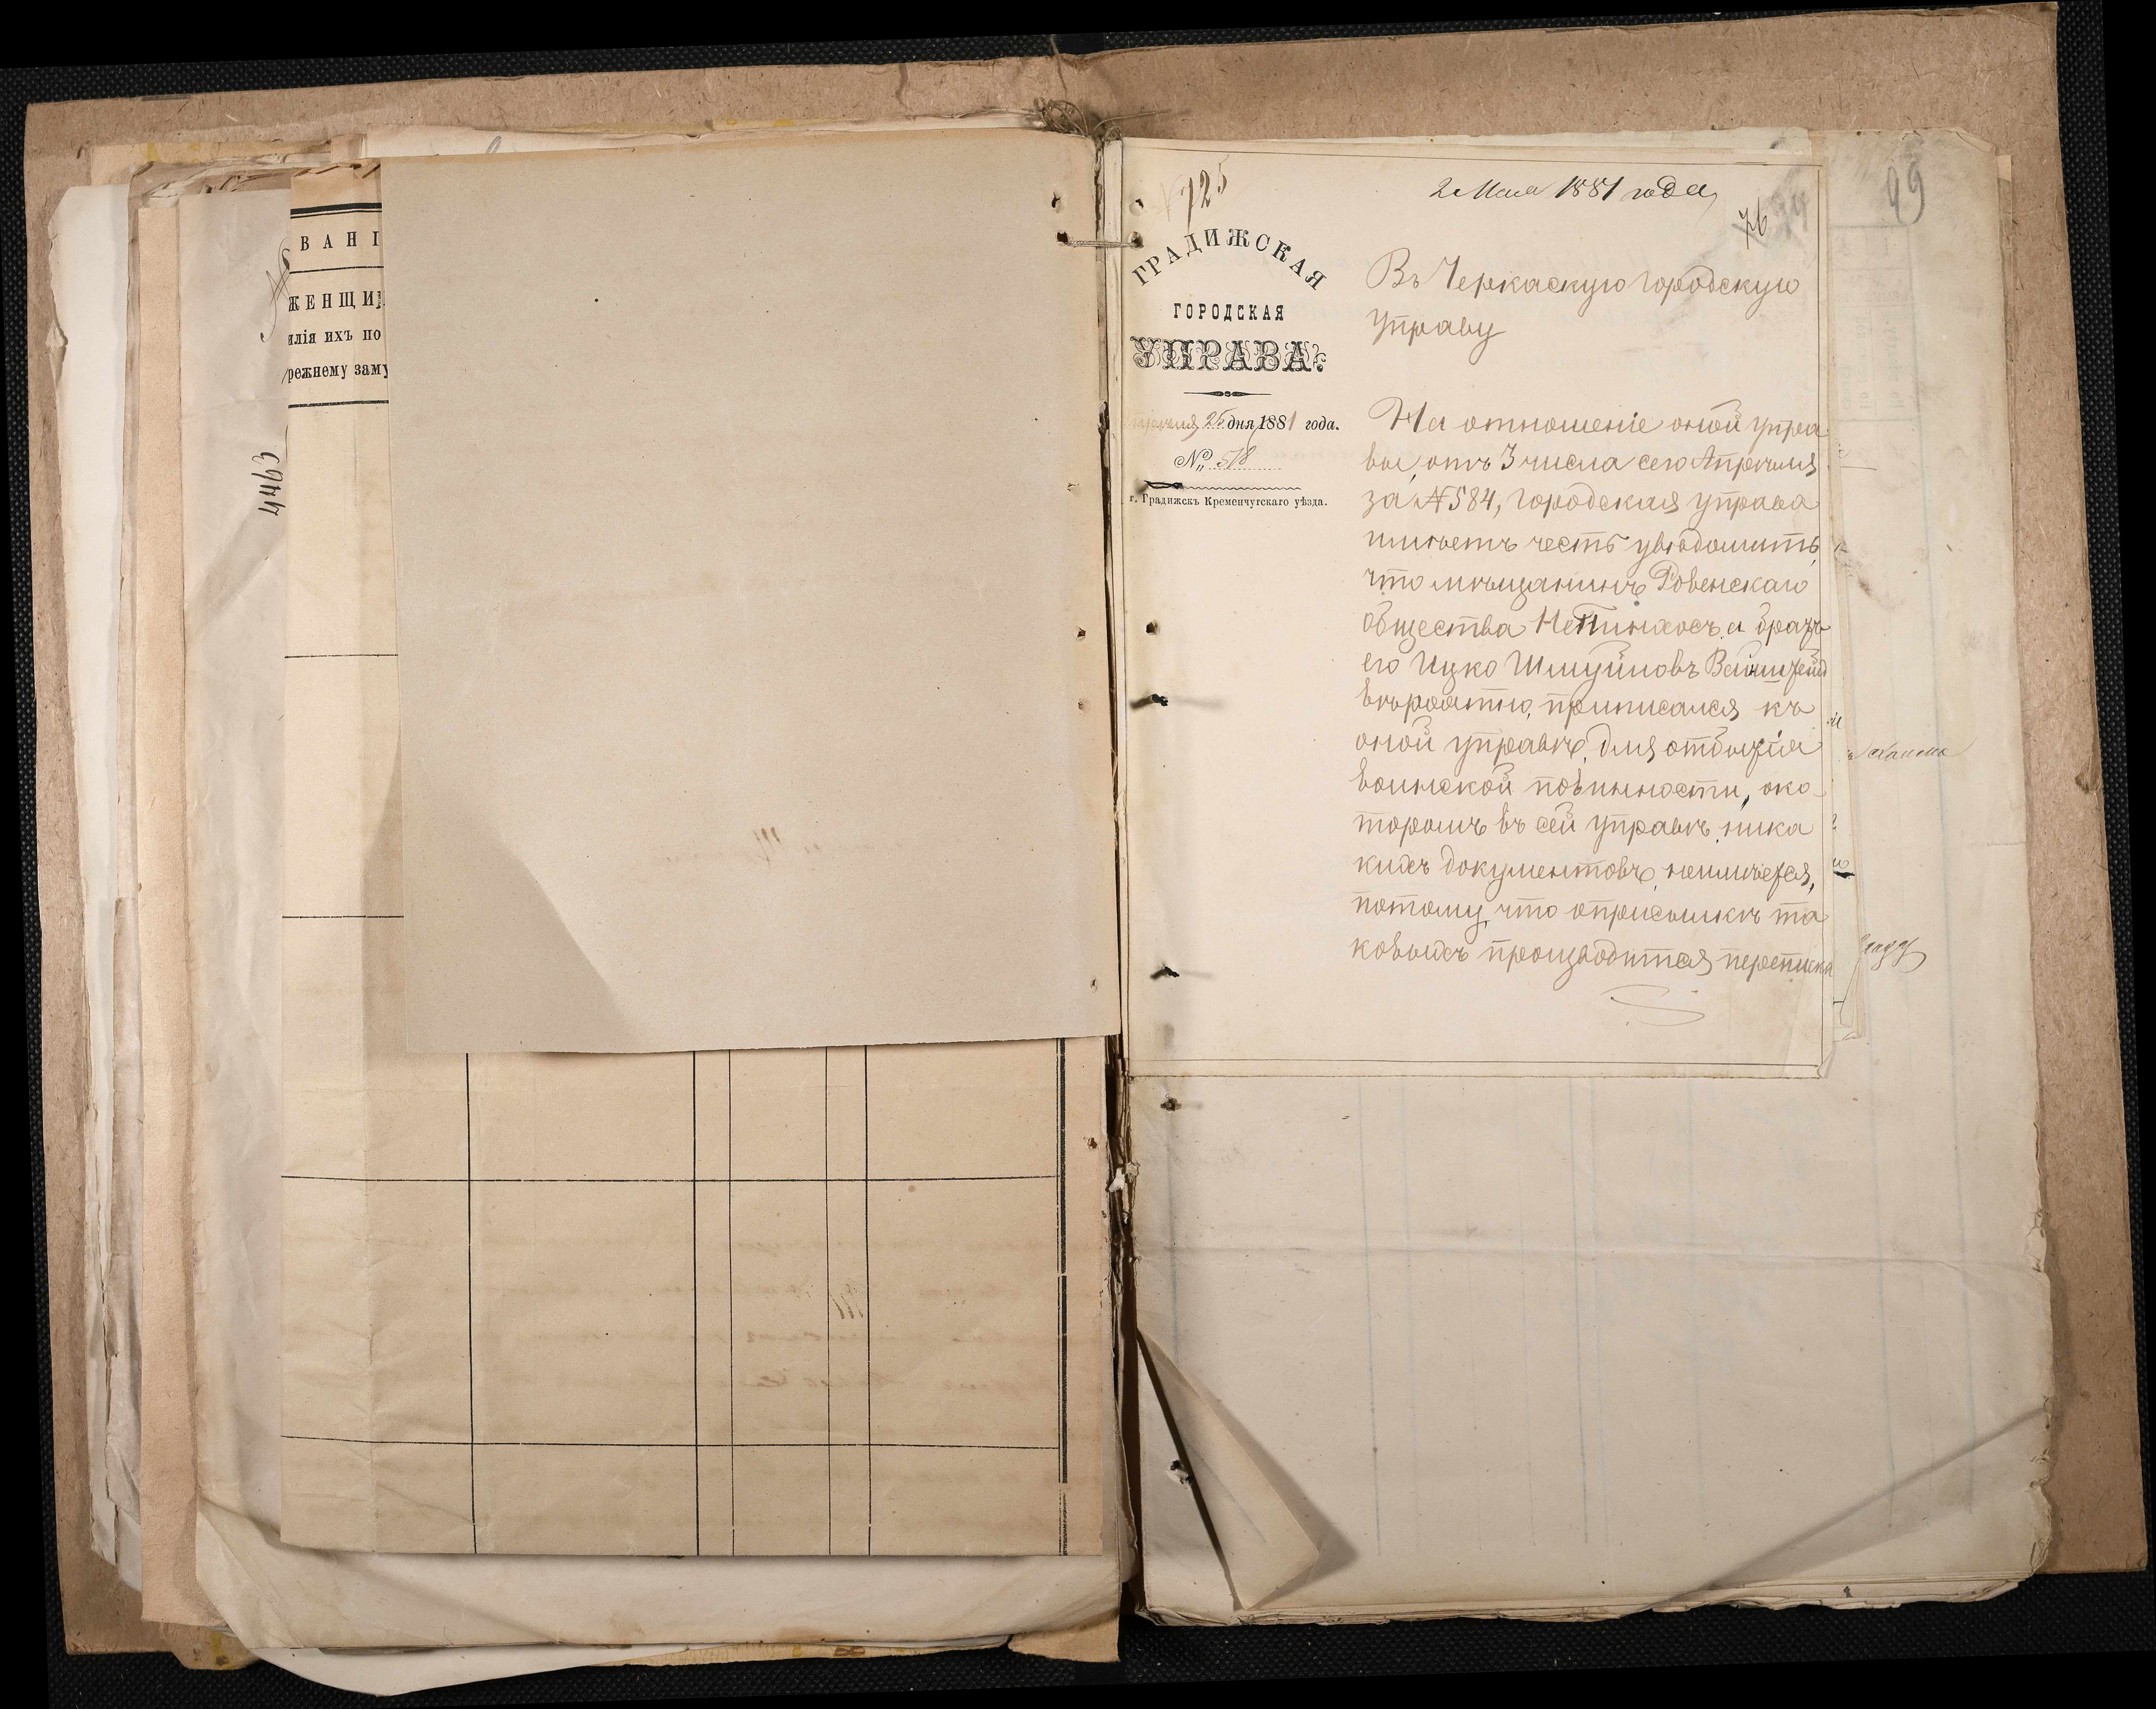 ВАНІ
ЖЕНЩИ
илія ихъ по
режнему заму
725
2 Мая 1881 года
76
99
ГРАДИЖСКАЯ
ГОРОДСКАЯ
УПРАВА.
25 дня 1881 года.
№ 518
г. Градижскъ Кременчугскаго уѣзда.
Въ Черкаскую городскую
управу
На отношеніе оной упра
вы, отъ 3 числа сего Апрѣля
за №584, городская управа
имѣетъ честь увѣдомить,
что мѣщанинъ Ровенскаго
общества Не Пинхосъ а братъ
его Ицко Шмуйловъ
вѣроятно, приписался къ
оной управѣ, для отбытія
воинской повинности, око-
торомъ въ сей управѣ ника
кихъ документовъ, неимѣется,
потому что оприсылкѣ та
ковыхъ производится переписка